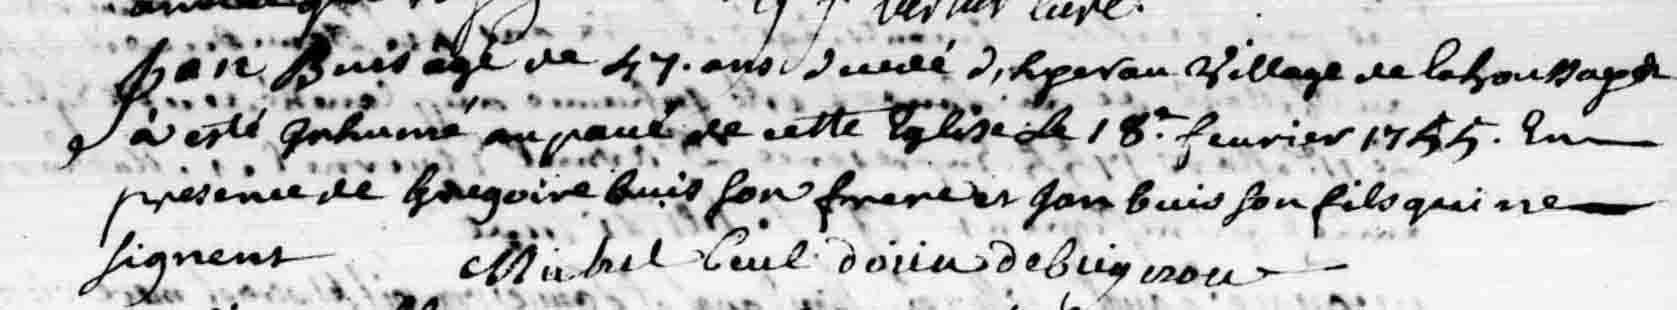 curé.
Jan Buis âgé de 47. ans decedé d'hyer au Village de
à esté Inhumé au pavé de cette Eglise le 18.e feurier 1755. En
presence de Gregoire buis son frere et Jan buis son fils qui ne
signent Michel